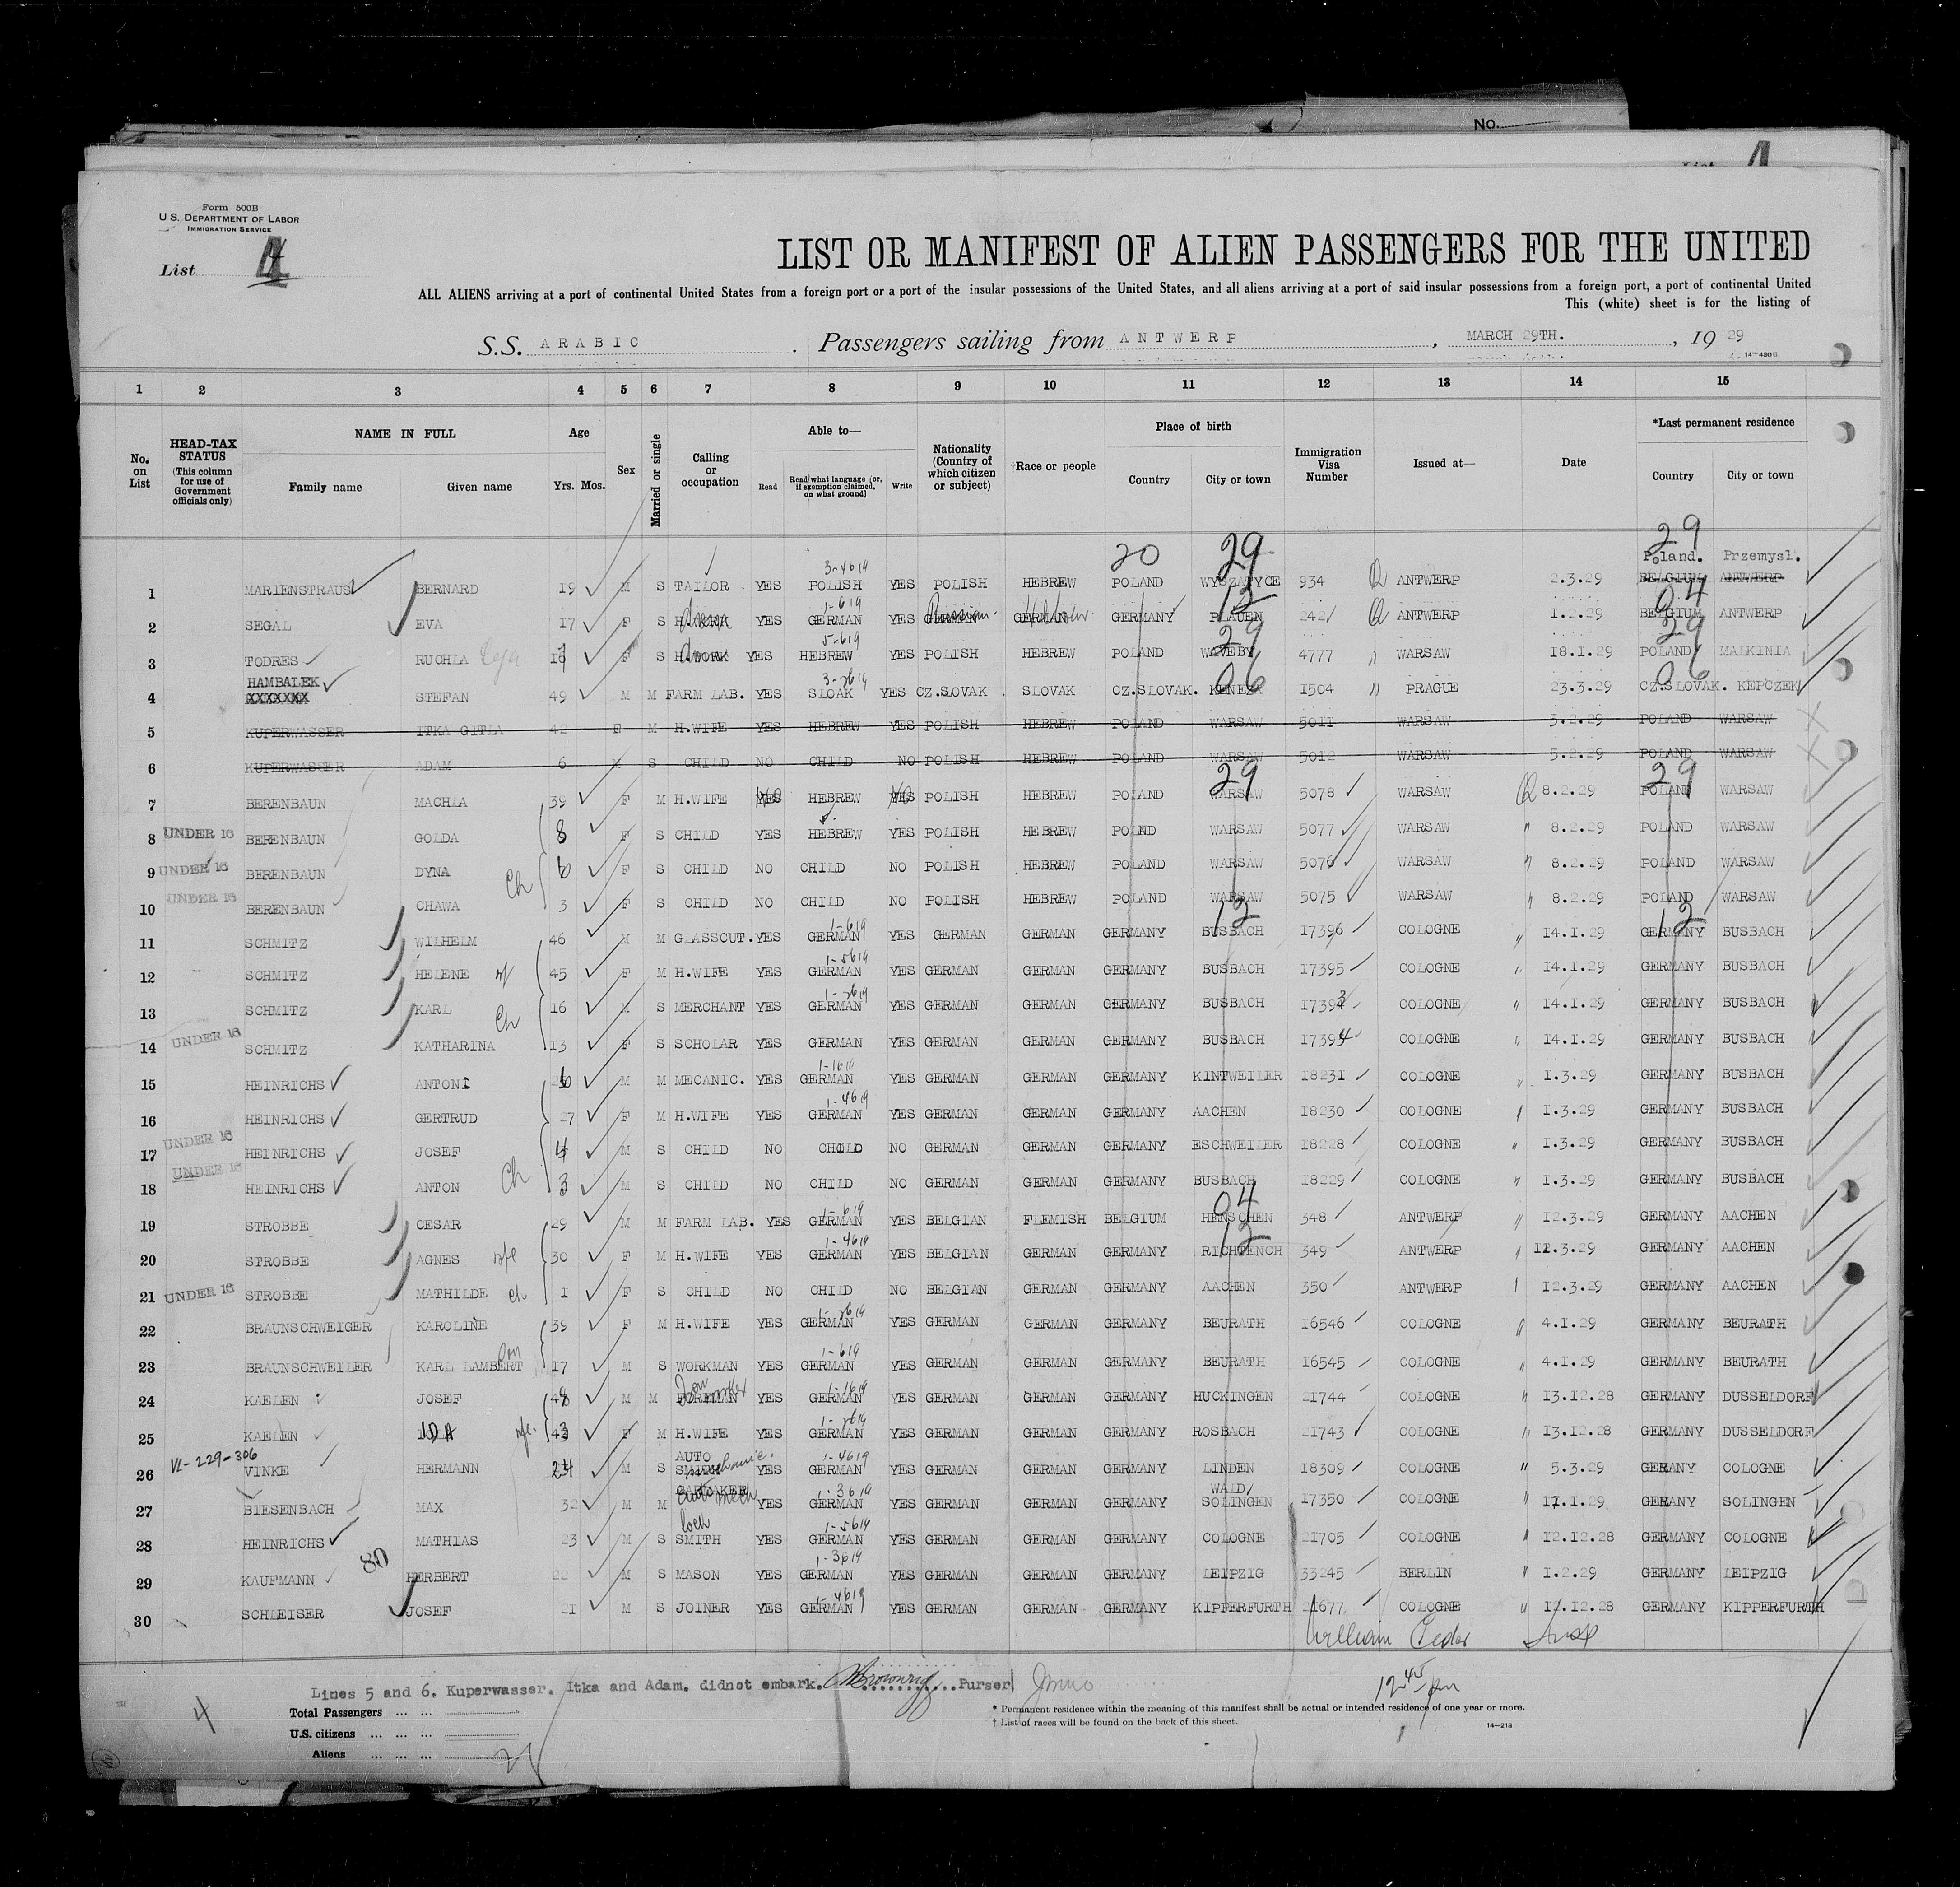 No.
List 4
Form 500B
U.S. DEPARTMENT OF LABOR
IMMIGRATION SERVICE
List 4
LIST OR MANIFEST OF ALIEN PASSENGERS FOR THE UNITED
ALL ALIENS arriving at a port of continental United States from a foreign port or a port of the insular possessions of the United States, and all aliens arriving at a port of said insular possessions from a foreign port, a port of continental United
This (white) sheet is for the listing of
S.S. ARABIC . Passengers sailing from ANTWERP , MARCH 29TH. , 19 29
14—430B
1 2 3 4 5 6 7 8 9 10 11 12 13 14 15
No. on List
HEAD-TAX STATUS (This column for use of Government officials only)
NAME IN FULL
Family name Given name
Age
Yrs. Mos.
Sex
Married or single
Calling or occupation
Able to—
Read Read what language (or, if exemption claimed, on what ground) Write
Nationality (Country of which citizen or subject)
†Race or people
Place of birth
Country City or town
Immigration Visa Number
Issued at—
Date
*Last permanent residence
Country City or town
20 29 29
3-4019 Poland. Przemysl.
1 MARIENSTRAUS BERNARD 19 M S TAILOR YES POLISH YES POLISH HEBREW POLAND WYSZATYCE 934 ANTWERP 2.3.29 BELGIUM ANTWERP
1-619 12 04
2 SEGAL EVA 17 F S YES GERMAN YES GERMAN GERMAN Hebrew GERMANY PLAUEN 242 ANTWERP 1.2.29 BELGIUM ANTWERP
5-619 29 29
3 TODRES RUCHLA F S H.WORK YES HEBREW YES POLISH HEBREW POLAND 4777 WARSAW 18.1.29 POLAND MALKINIA
3-2619 06 06
4 HAMBALEK XXXXXXX STEFAN 49 M M FARM LAB. YES SLOAK YES CZ.SLOVAK SLOVAK CZ.SLOVAK. 1504 PRAGUE 23.3.29 CZ.SLOVAK. KEPCZEK
5 KUPERWASSER ITKA GITLA 42 F M H.WIFE YES HEBREW YES POLISH HEBREW POLAND WARSAW 5011 WARSAW 5.2.29 POLAND WARSAW
6 KUPERWASSER ADAM 6 M S CHILD NO CHILD NO POLISH HEBREW POLAND WARSAW 5012 WARSAW 5.2.29 POLAND WARSAW
29 29
7 BERENBAUN MACHLA 39 F M H.WIFE NO HEBREW NO POLISH HEBREW POLAND WARSAW 5078 WARSAW 8.2.29 POLAND WARSAW
8 UNDER 16 BERENBAUN GOLDA 8 F S CHILD YES HEBREW YES POLISH HEBREW POLND WARSAW 5077 WARSAW " 8.2.29 POLAND WARSAW
9 UNDER 16 BERENBAUN DYNA 6 F S CHILD NO CHILD NO POLISH HEBREW POLAND WARSAW 5076 WARSAW " 8.2.29 POLAND WARSAW
10 UNDER 16 BERENBAUN CHAWA Ch 3 F S CHILD NO CHILD NO POLISH HEBREW POLAND WARSAW 5075 WARSAW " 8.2.29 POLAND WARSAW
1-619 12 12
11 SCHMITZ WILHELM 46 M M GLASSCUT. YES GERMAN YES GERMAN GERMAN GERMANY BUSBACH 17396 COLOGNE " 14.1.29 GERMANY BUSBACH
1-5619
12 SCHMITZ HELENE wf 45 F M H.WIFE YES GERMAN YES GERMAN GERMAN GERMANY BUSBACH 17395 COLOGNE " 14.1.29 GERMANY BUSBACH
1-2619
13 SCHMITZ KARL Ch 16 M S MERCHANT YES GERMAN YES GERMAN GERMAN GERMANY BUSBACH 17393 COLOGNE " 14.1.29 GERMANY BUSBACH
14 UNDER 16 SCHMITZ KATHARINA 13 F S SCHOLAR YES GERMAN YES GERMAN GERMAN GERMANY BUSBACH 17394 COLOGNE " 14.1.29 GERMANY BUSBACH
15 HEINRICHS ANTON M M MECANIC. YES GERMAN YES GERMAN GERMAN GERMANY KINTWEILER 18231 COLOGNE " 1.3.29 GERMANY BUSBACH
1-4619
16 HEINRICHS GERTRUD 27 F M H.WIFE YES GERMAN YES GERMAN GERMAN GERMANY AACHEN 18230 COLOGNE " 1.3.29 GERMANY BUSBACH
17 UNDER 16 HEINRICHS JOSEF 4 M S CHILD NO CHILD NO GERMAN GERMAN GERMANY ESCHWEILER 18228 COLOGNE " 1.3.29 GERMANY BUSBACH
18 UNDER 16 HEINRICHS ANTON Ch 3 M S CHILD NO CHILD NO GERMAN GERMAN GERMANY BUSBACH 18229 COLOGNE " 1.3.29 GERMANY BUSBACH
1-619 04
19 STROBBE CESAR 29 M M FARM LAB. YES GERMAN YES BELGIAN FLEMISH BELGIUM HENSCHEN 348 ANTWERP " 12.3.29 GERMANY AACHEN
1-4619 12
20 STROBBE AGNES wfe 30 F M H.WIFE YES GERMAN YES BELGIAN GERMAN GERMANY RICHTENCH 349 ANTWERP 12.3.29 GERMANY AACHEN
21 UNDER 16 STROBBE MATHILDE ch 1 F S CHILD NO CHILD NO BELGIAN GERMAN GERMANY AACHEN 350 ANTWERP 12.3.29 GERMANY AACHEN
1-2619
22 BRAUNSCHWEIGER KAROLINE 39 F M H.WIFE YES GERMAN YES GERMAN GERMAN GERMANY BEURATH 16546 COLOGNE 4.1.29 GERMANY BEURATH
1-619
23 BRAUNSCHWEILER KARL LAMBERT Son 17 M S WORKMAN YES GERMAN YES GERMAN GERMAN GERMANY BEURATH 16545 COLOGNE " 4.1.29 GERMANY BEURATH
1-1619
24 KAELEN JOSEF 48 M M FORMAN YES GERMAN YES GERMAN GERMAN GERMANY HUCKINGEN 21744 COLOGNE " 13.12.28 GERMANY DUSSELDORF
1-2619
25 KAELEN IDA wfe. 43 F M H.WIFE YES GERMAN YES GERMAN GERMAN GERMANY ROSBACH 21743 COLOGNE " 13.12.28 GERMANY DUSSELDORF
VL-229-306 AUTO mechanic. 1-4619
26 VINKE HERMANN 24 M S SMITH YES GERMAN YES GERMAN GERMAN GERMANY LINDEN 18309 COLOGNE " 5.3.29 GERANY COLOGNE
auto mech 1-3619 WALD/
27 BIESENBACH MAX 32 M M YES GERMAN YES GERMAN GERMAN GERMANY SOLINGEN 17350 COLOGNE " 11.1.29 GERANY SOLINGEN
lock 1-5619
28 HEINRICHS MATHIAS 23 M S SMITH YES GERMAN YES GERMAN GERMAN GERMANY COLOGNE 21705 COLOGNE " 12.12.28 GERMANY COLOGNE
80 1-3619
29 KAUFMANN HERBERT 22 M S MASON YES GERMAN YES GERMAN GERMAN GERMANY LEIPZIG 33245 BERLIN " 1.2.29 GERMANY LEIPZIG
1-4619
30 SCHLEISER JOSEF 21 M S JOINER YES GERMAN YES GERMAN GERMAN GERMANY KIPPERFURTH 21677 COLOGNE " 11.12.28 GERMANY KIPPERFURTH
William Insp
Lines 5 and 6. Kuperwasser. Itka and Adam. didnot embark. Browning Purser
12 45 pm
4
Total Passengers
U.S. citizens
Aliens
* Permanent residence within the meaning of this manifest shall be actual or intended residence of one year or more.
† List of races will be found on the back of this sheet.
14—218